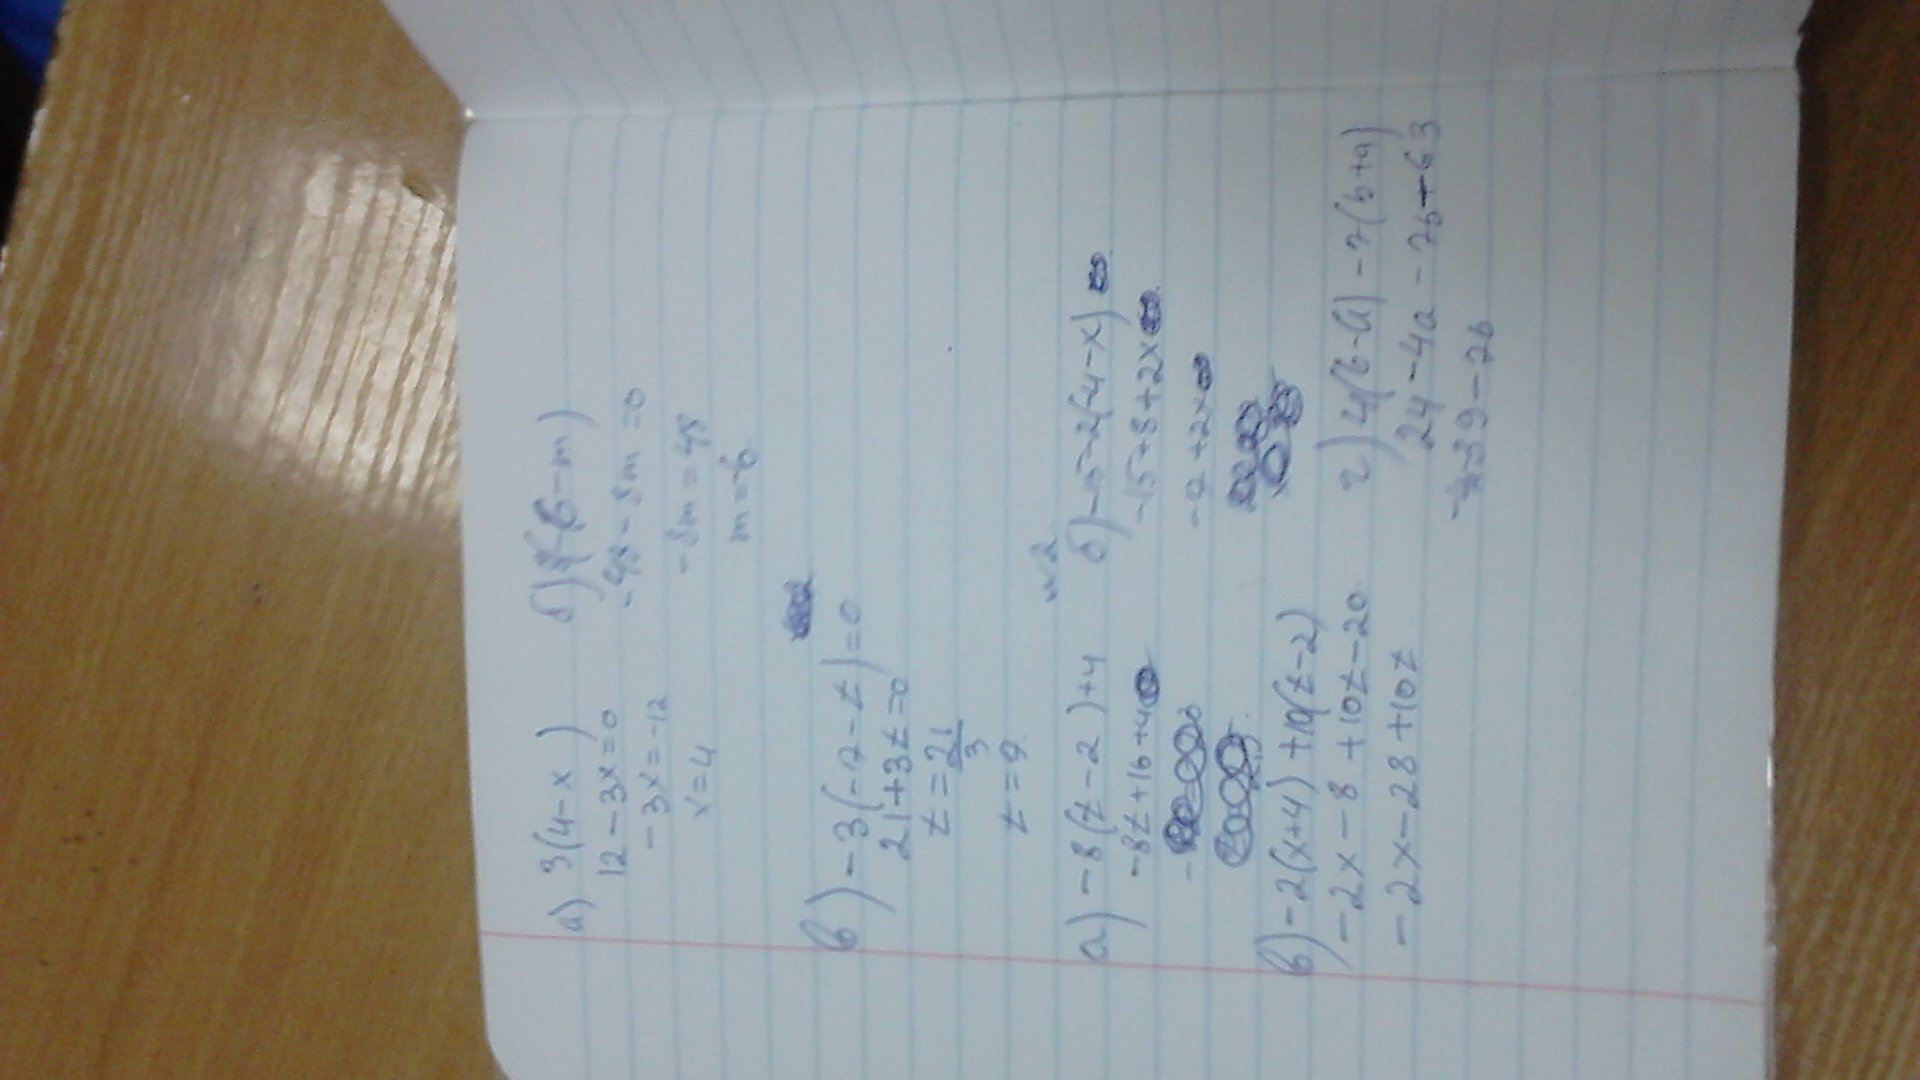 а) 3(4-x)
12-3x=0
-3x=-12
x=4
б) 8(-6-m)
-48-8m=0
-8m=48
m=-6
в) -3(-7-t)=0
21+3t=0
t=21/3
t=7
№2
а) -8(t-2)+4
-8t+16+4
б) -15-2(4-x)
-15+8+2x
-7+2x
в) -2(x+4)+10(t-2)
-2x-8+10t-20
-2x-28+10t
г) 4(6-a)-7(b+a)
24-4a-7b+63
39-7b